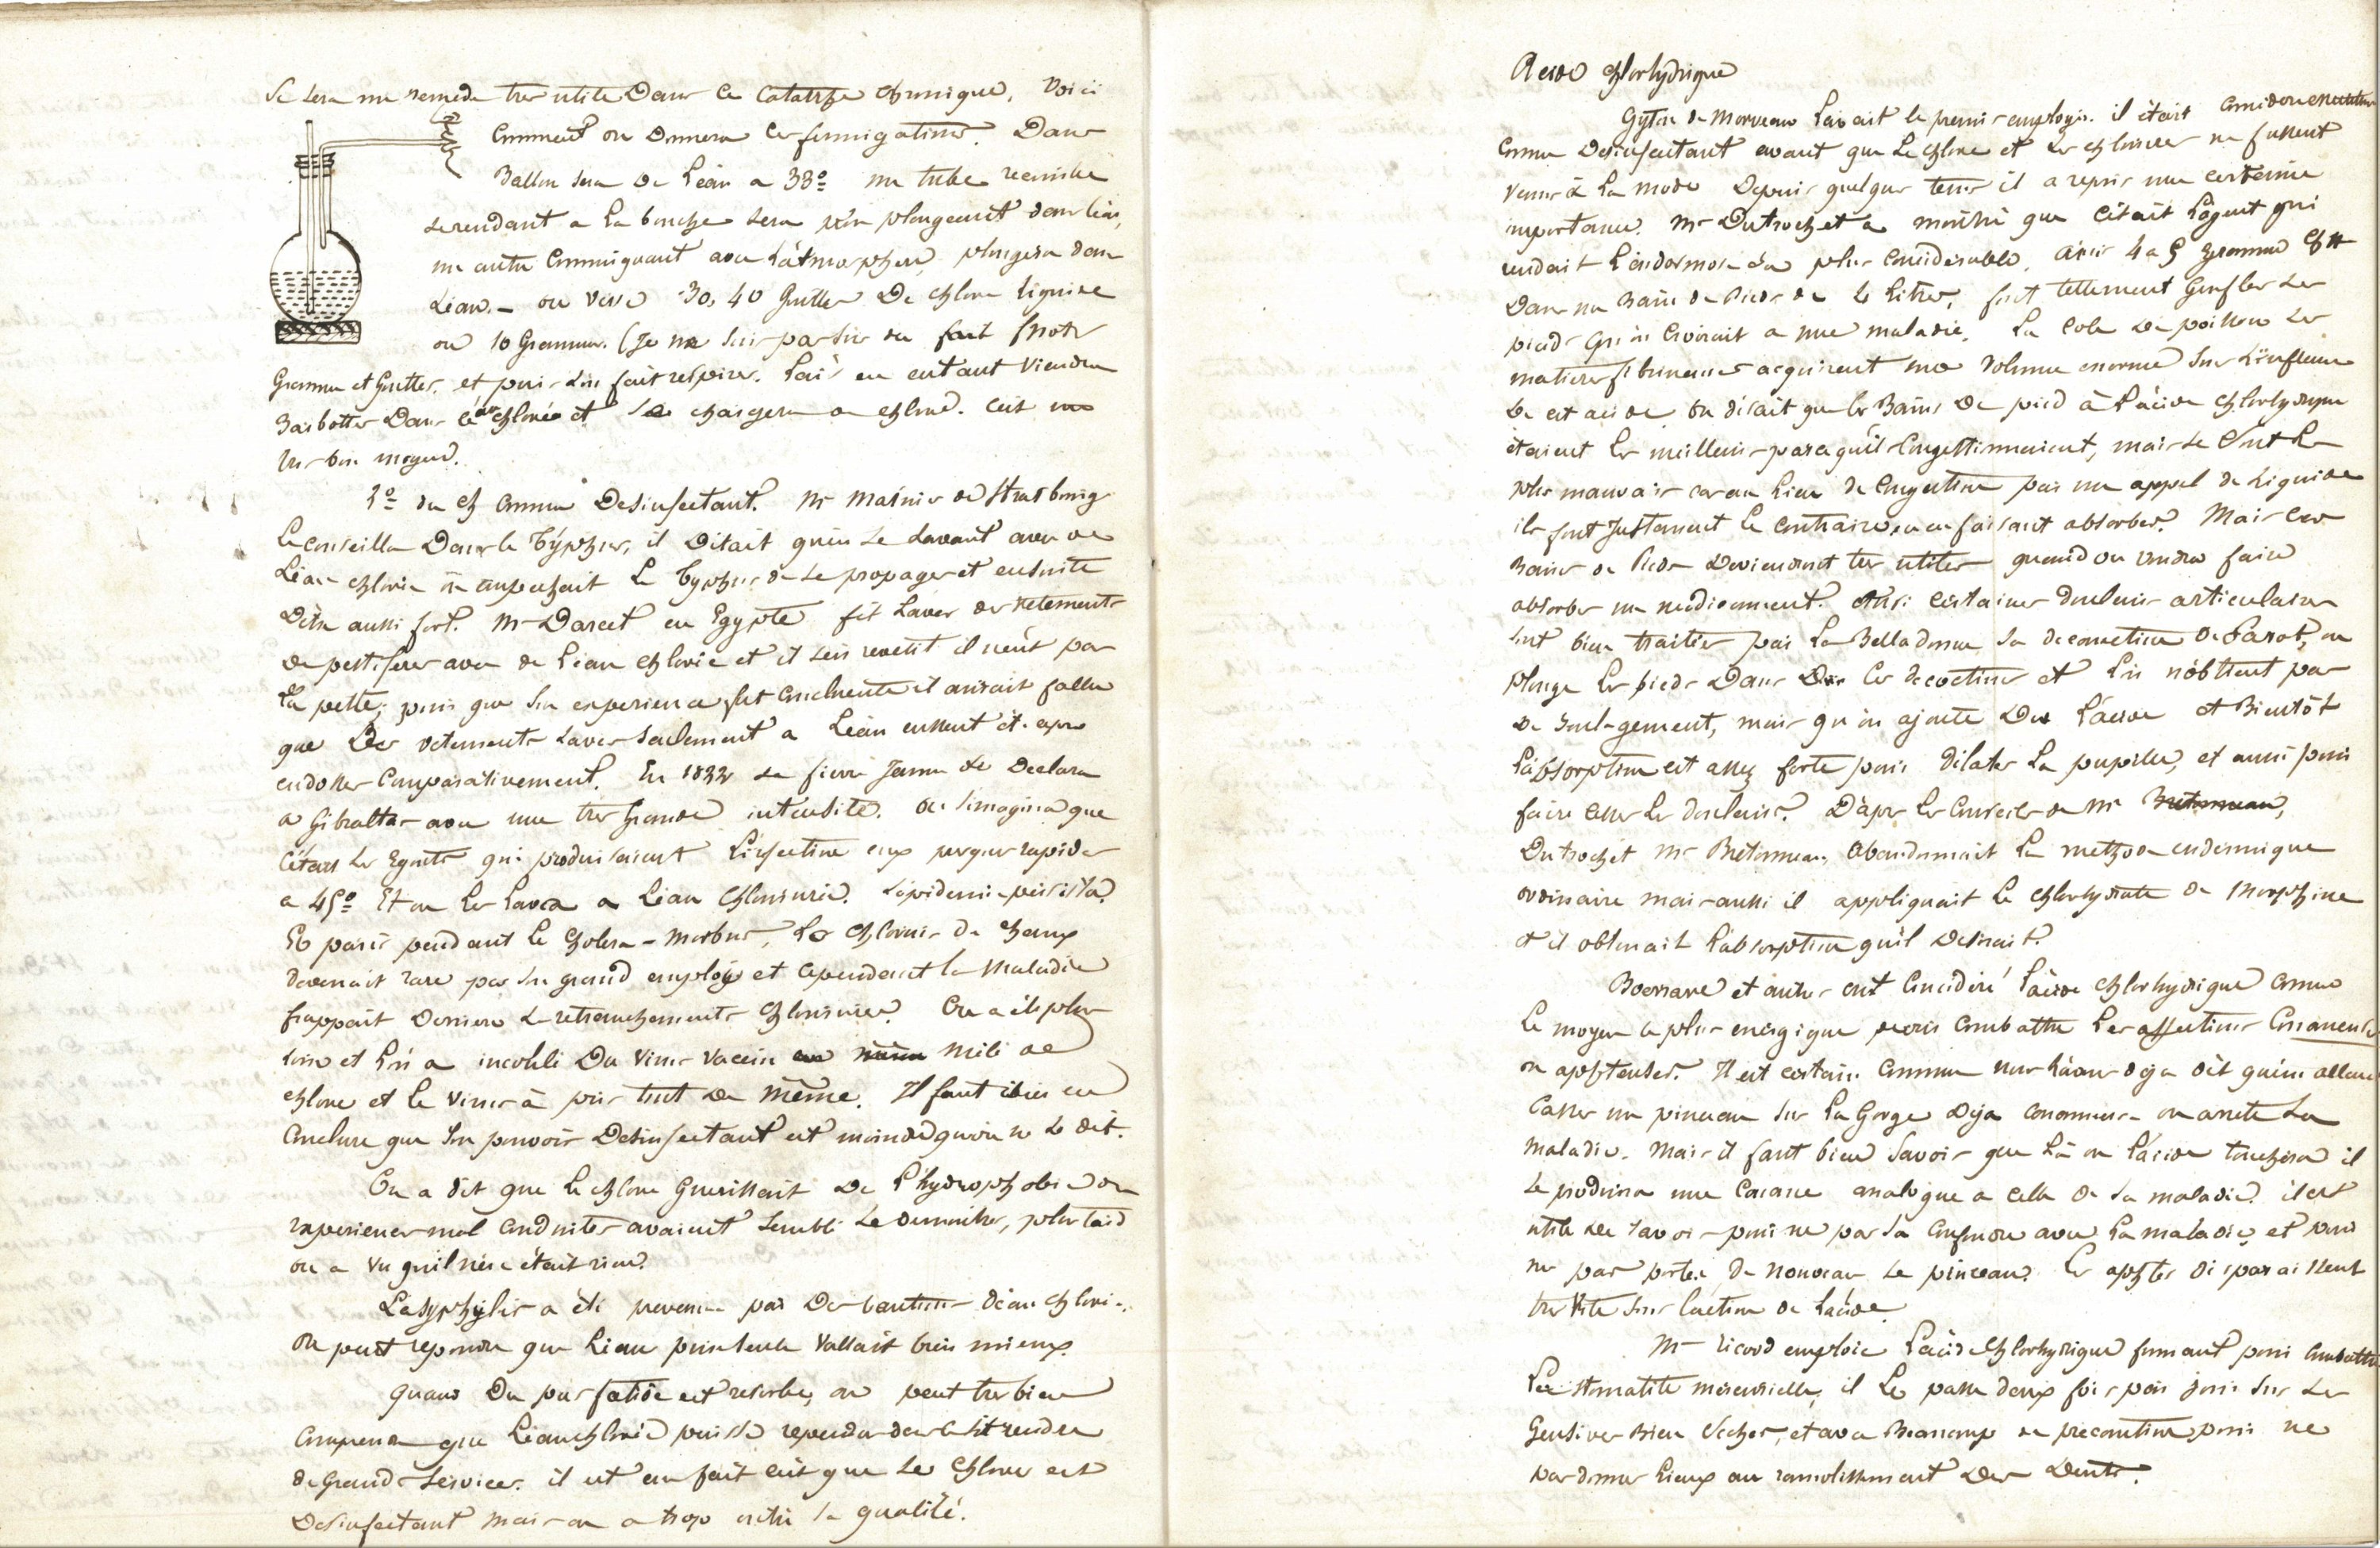 Ce sera un remede tres utile Dans Le Catarrhe chronique. Voici
Comment on Donnera les fumigations. Dans
Ballon sera de l'eau a 33° un tube recourbé
se rendant a la bouche sera non plongeant dans l'eau,
un autre Communiquant avec l'atmosphere, plongera dans
L'eau. – on verse 30, 40 Gouttes De chlore liquide
ou 10 Grammes. (Je ne suis pas sur du fait
Gramme et Gouttes. et puis L'on fait respirer. l'air en entrant viendra
Barbotter Dans l'eau chlorée et se chargera de chlore. C'est un
tres bon moyen.
2° du ch comme Desinfectant. Mr Masnier de Strasbourg
Le conseilla Dans le Typhus, il Disait qu'en se Lavant avec de
L'eau chlorée on empechait Le Typhus de se propager et ensuite
D'etre aussi fort. Mr Darcet en Egypte fit Laver des vetements
de pestiferes avec de l'eau chlorée et il s'en revetit il n'eut pas
La peste; pour que son experience fut concluente il aurait fallu
que Des vetements Lavés seulement a L'eau eussent été
endossés Comparativement. En 1822 La fievre Jaune se Declara
a Gibraltar avec une tres Grande intensité. On s'imagina que
C'etait Les Egouts qui produisaient L'infection
a 45° Et on Les Lava a L'eau Chlorurée. L'epidemie persista.
Et paris pendant le Cholera-Morbus, Le chlorure De chaux
devenait rare par son grand emploi et cependant la Maladie
frappait Derriere Les retranchements Chlorurés. On a été plus
loin et l'on a inoculé Du virus vaccin melé de
chlore et le virus a pris tout de même. Il faut donc en
Conclure que son pouvoir Desinfectant est moindre qu'on ne Le dit.
On a dit que Le chlore Guerissait De l'hydrophobie des
experiences mal conduites avaient semblé Le demontrer, plus tard
on a vu qu'il n'en etait rien.
La syphilis a été prevenue par Des lotions d'eau chlorée.
On peut repondre que L'eau pure seule vallait bien mieux.
Quand Du pus fetide est resorbé, on peut tres bien
Comprendre que L'eau chlorée puisse repandue dans le lit rendre
de Grands Services. il est en fait que Le Chlore est
Desinfectant Mais on a trop outré sa qualité.
Acide Chlorhydrique
Gyton de Morveau l'avait le premier employé. il était
Comme Desinfectant avant que Le chlore et Les chlorures ne fussent
venus à La mode Depuis quelques tems il a repris une certaine
importance. Mr Dutrochet a montré que C'était l'agent qui
rendait l'endosmose La plus Considerable. Ainsi 4 a 5 Grammes
Dans un Bain de Pieds de Litres, font tellement Gonfler Les
pieds qu'on croirait a une maladie. La Colle de poisson Les
matieres fibrineuses acquierent un volume enorme Sous L'influence
De cet acide. On disait que les Bains De pied à l'acide chlorhydrique
étaient les meilleurs parcequ'ils Congestionnaient, mais ce sont les
plus mauvais car au lieu De Congestion par un appel de Liquide
ils font Justement Le Contraire, en en faisant absorber. Mais ces
Bains de Pieds Deviendront tres utiles quand on voudra faire
absorber un medicament. Ainsi certaines douleurs articulaires
sont bien traitées par La Belladonne La decoction De Pavot, on
plonge Les pieds Dans Ces decoctions et L'on n'obtient pas
De soulagement, mais qu'on ajoute De l'acide et Bientôt
l'absorption est assez forte pour dilater La pupille, et aussi pour
faire cesser Les douleurs. D'apres Les Conseils de Mr Bretonneau,
Dutrochet Mr Bretonneau. Abandonnait La methode endermique
ordinaire mais aussi il appliquait le Chlorhydrate de Morphine
et il obtenait l'absorption qu'il Desirait.
Boerrave et autres ont Consideré l'acide chlorhydrique comme
Le moyen le plus energique pour Combattre Les affections Couaneuses
ou aphteuses. Il est certain Comme nous l'avons deja dit qu'en allant
Passer un pinceau sur La Gorge Deja Couanneuse on arrete La
maladie. Mais il faut bien savoir que Là ou l'acide touchera il
se produira une Couane analogue a celle de La maladie. il est
utile de savoir pour ne pas La Confondre avec La maladie et pour
ne pas porter de nouveau Le pinceau. Les aphtes disparaissent
tres vite sous l'action de l'acide.
Mr Ricord emploie l'acide Chlorhydrique fumant pour Combattre
La stomatite mercurielle, il Le passe deux fois par jour sur Les
Gensives Bien seches, et avec Beaucoup de precaution pour ne
pas donner lieux au ramolissement Des Dents.